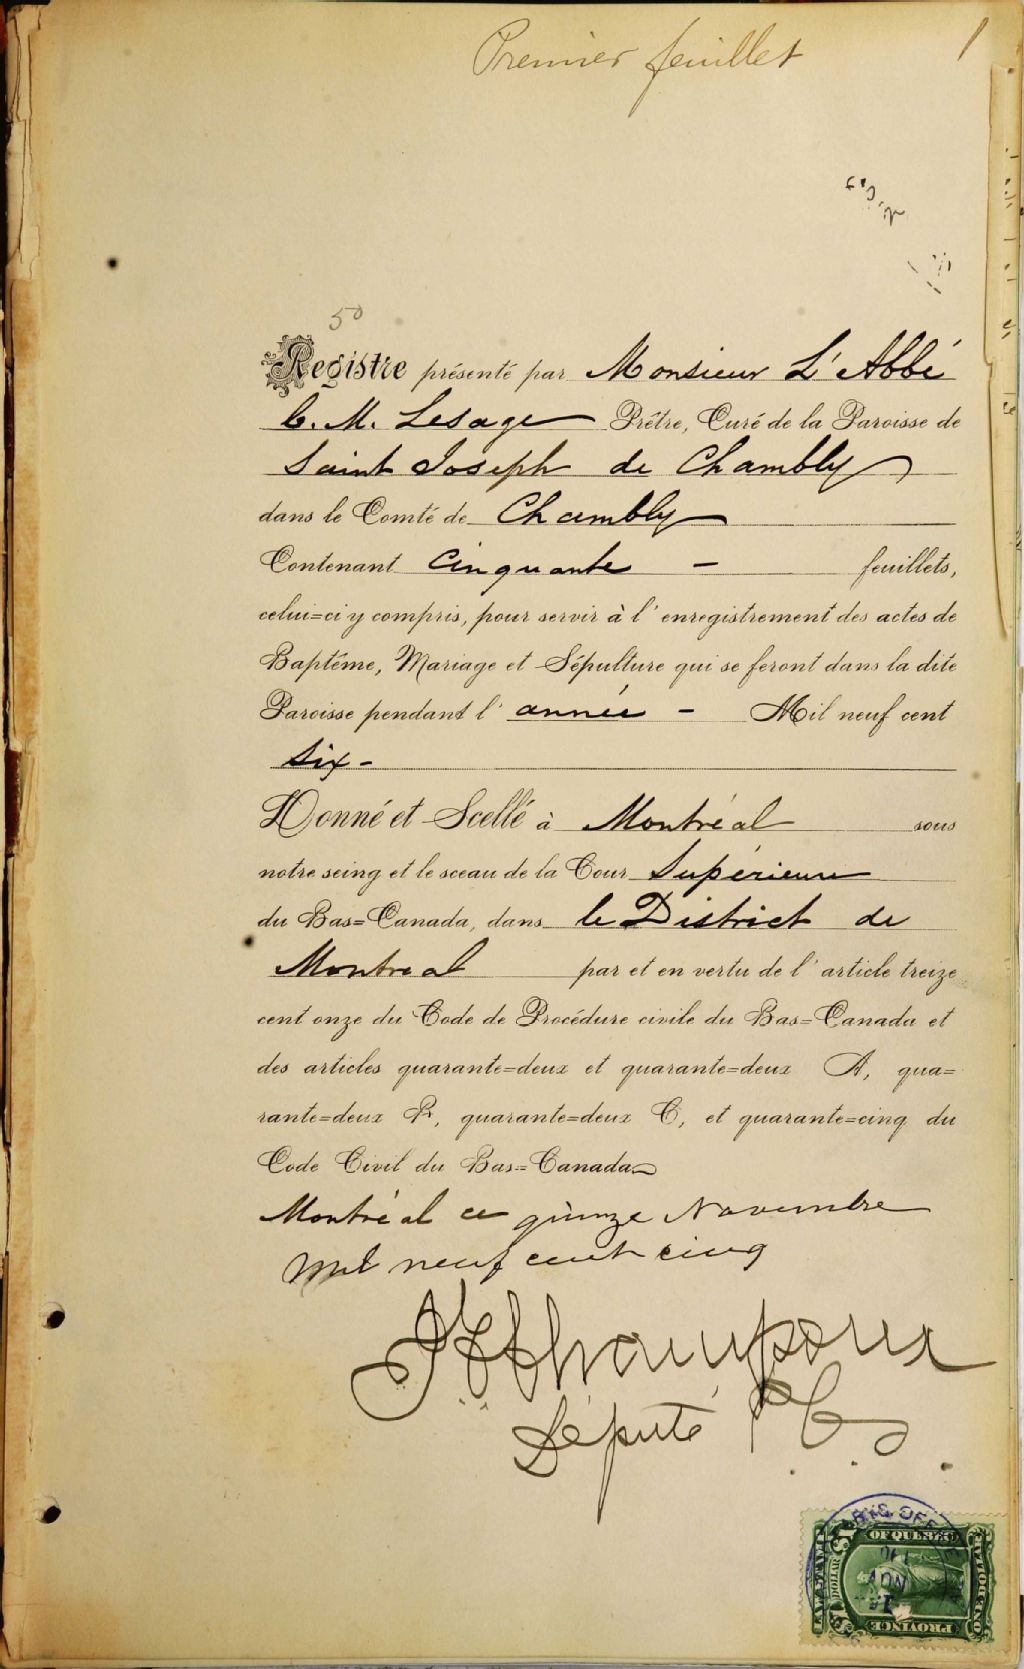 Premier feuillet 1
50
Registre présenté par Monsieur L'Abbé
C. M. Lesage Prêtre, Curé de la Paroisse de
Saint Joseph de Chambly
dans le Comté de Chambly
Contenant Cinquante - feuillets,
celui=ci y compris, pour servir à l'enregistrement des actes de
Baptême, Mariage et Sépulture qui se feront dans la dite
Paroisse pendant l'année - Mil neuf cent
Six -
Donné et Scellé à Montréal sous
notre seing et le sceau de la Cour Supérieure
du Bas=Canada, dans le District de
Montréal par et en vertu de l'article treize
cent onze du Code de Procédure civile du Bas=Canada et
des articles quarante=deux et quarante=deux A, qua=
rante=deux B, quarante=deux C, et quarante=cinq du
Code Civil du Bas=Canada
Montréal ce quinze Novembre
Mil neuf cent cinq
Député P C S
OF QUEBEC
DOLLAR
NOV
PROVINCE